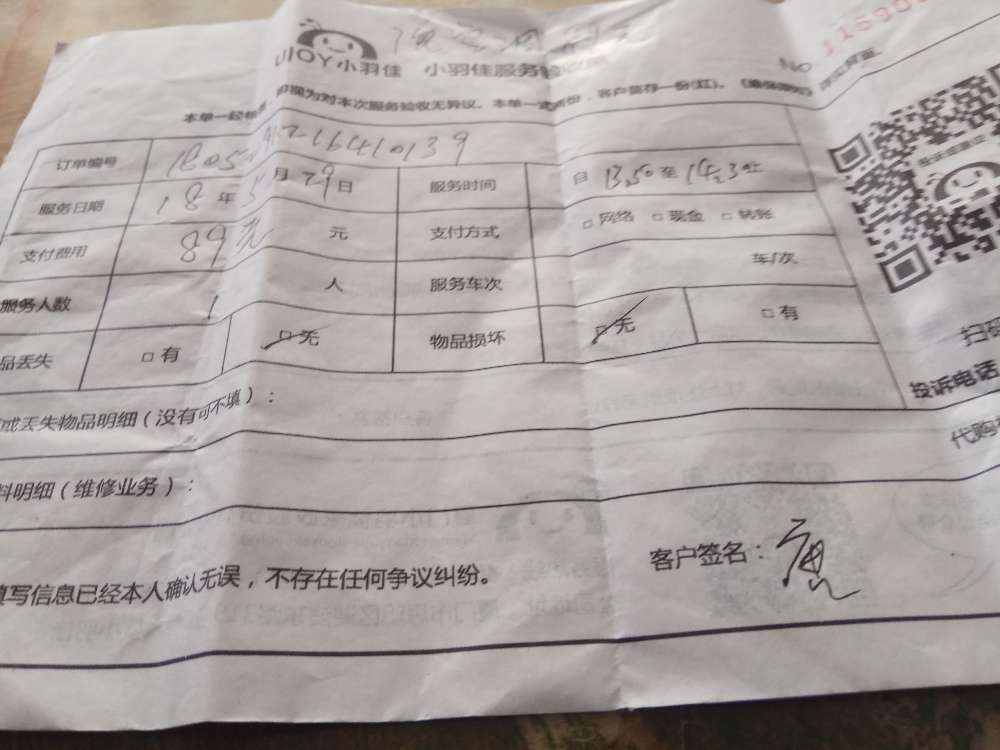 UIOY小羽佳 小羽佳服务验收单
No
即视为对本次服务验收无异议。本单一式两份，客户留存一份(红)。
订单编号
服务日期 18年5月29日 服务时间 自13:50至14:30止
支付费用 89元 元 支付方式 □网络 □现金 □转账
服务人数 1 人 服务车次 车/次
品丢失 □有 □无 物品损坏 □无 □有
扫码
投诉电话
或丢失物品明细（没有可不填）：
代购
料明细（维修业务）：
客户签名：
填写信息已经本人确认无误，不存在任何争议纠纷。